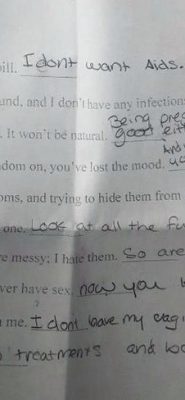 ill. I dont want Aids.
und, and I don't have any infection
Being pre
. It won't be natural. good eit
And
dom on, you've lost the mood.
oms, and trying to hide them from
one. Look at all the fu
e messy; I hate them. So are
ver have sex. now you
me. I dont have my
treatments and